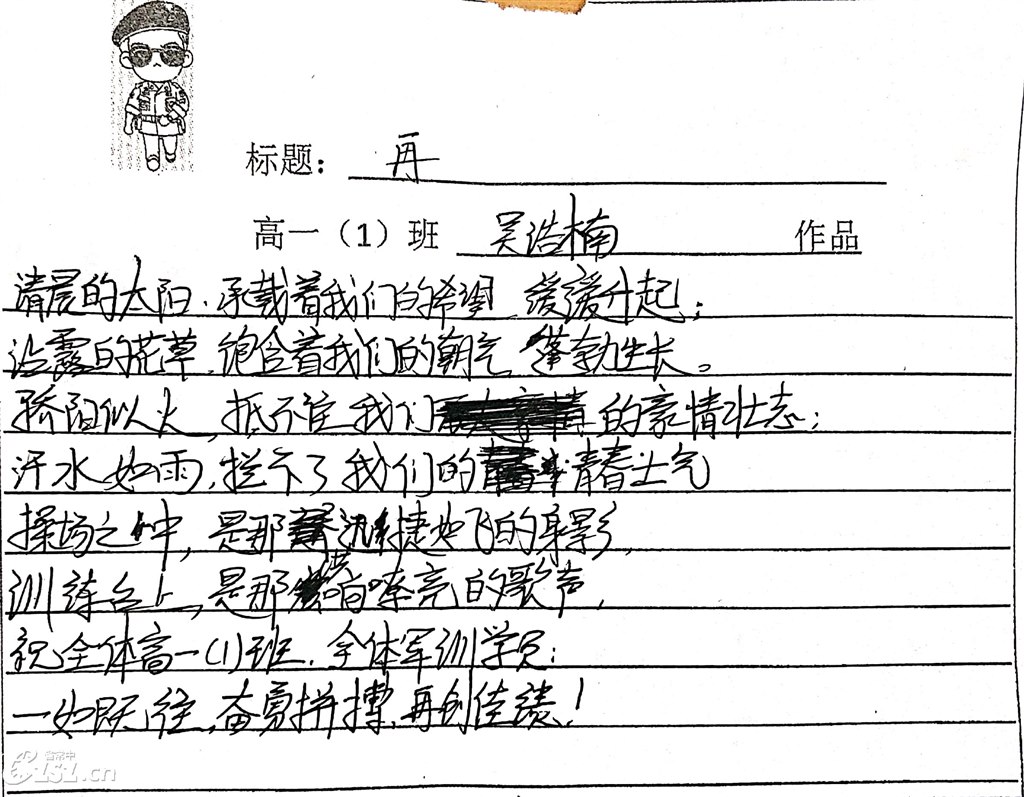 标题: 再
高一（1）班 吴浩楠 作品
清晨的太阳,承载着我们的希望,缓缓升起;
沾露的花草,饱含着我们的朝气,蓬勃生长。
骄阳似火,抵不住我们的豪情壮志;
汗水如雨,拦不了我们的青春士气
操场之中,是那迅捷如飞的身影,
训练台上,是那响嘹亮的歌声,
祝全体高一(1)班,全体军训学员:
一如既往,奋勇拼搏,再创佳绩!
.cn